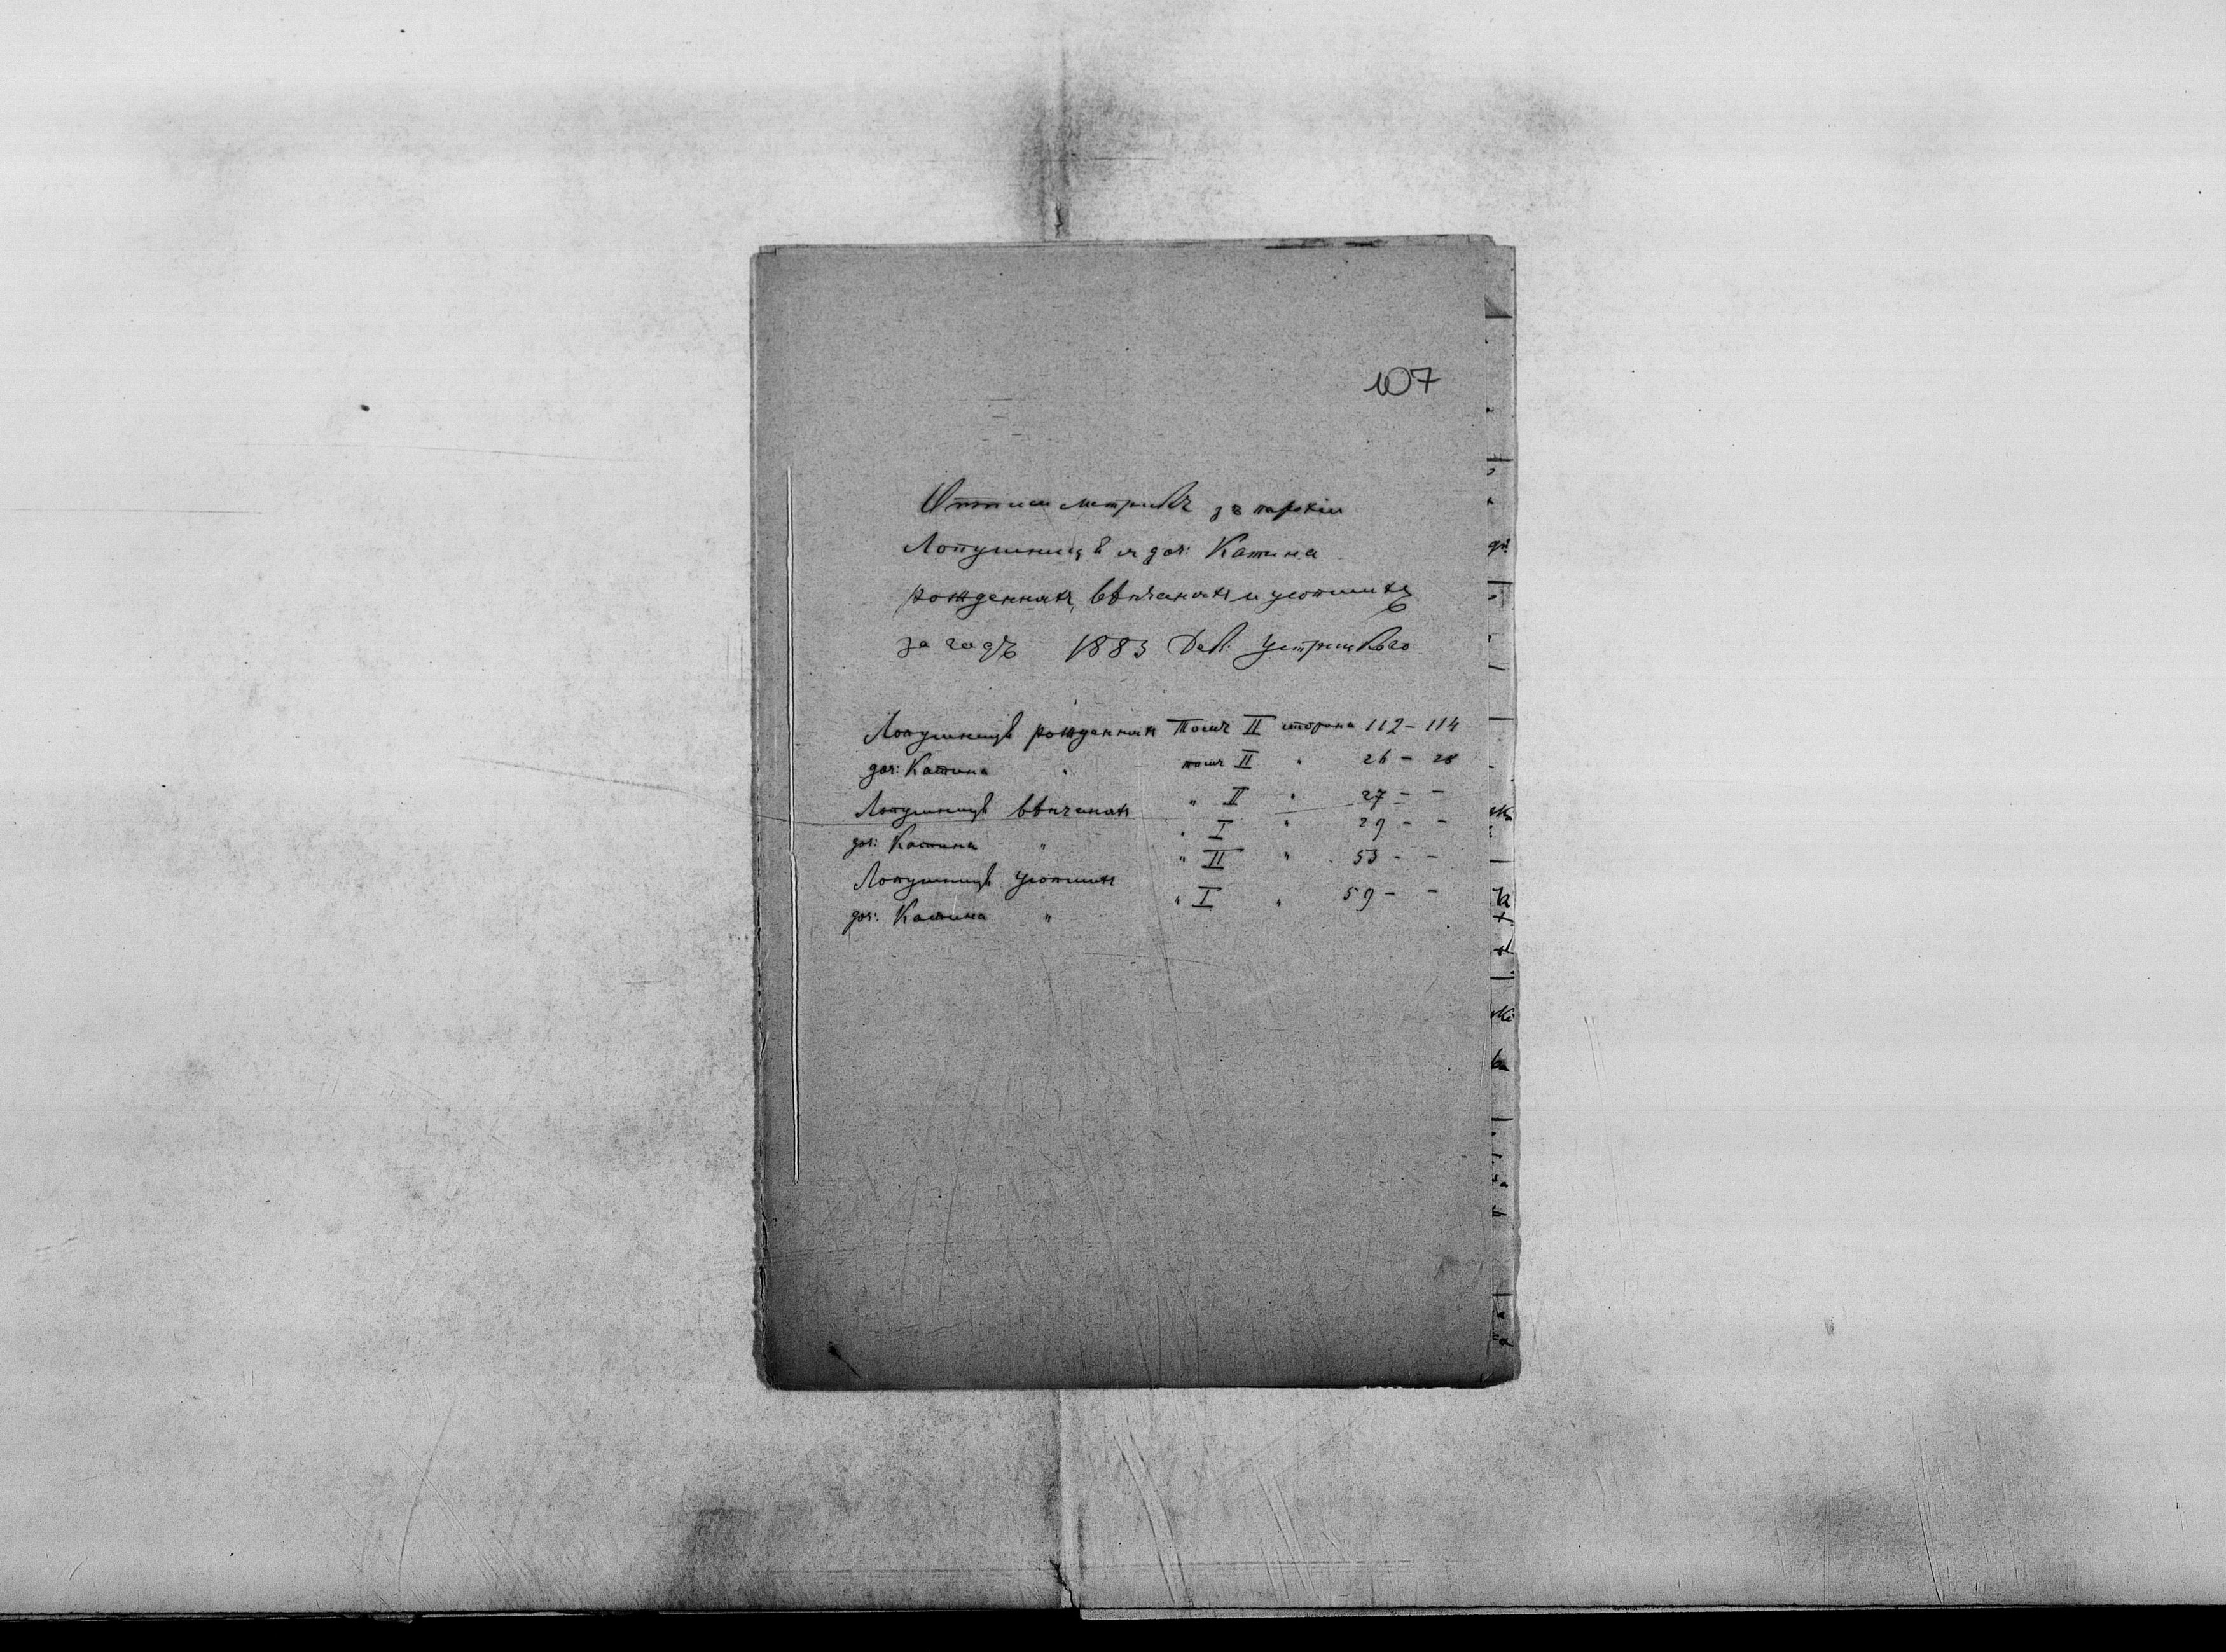 107
Отписи метрикъ зъ парохіи
Лопушницѣ и доч: Катина
рожденныхъ, вѣнчаныхъ и усопшихъ
за годъ 1883 Дек: Устрицкого
Лопушницѣ рожденныхъ Томъ II сторона 112 – 114
доч: Катина " томъ II " 26 – 28
Лопушницѣ вѣнчаныхъ " II " 27 – –
доч: Катина " " I " 29 – –
Лопушницѣ усопшихъ " II " 53 – –
доч: Катина " " I " 59 – –